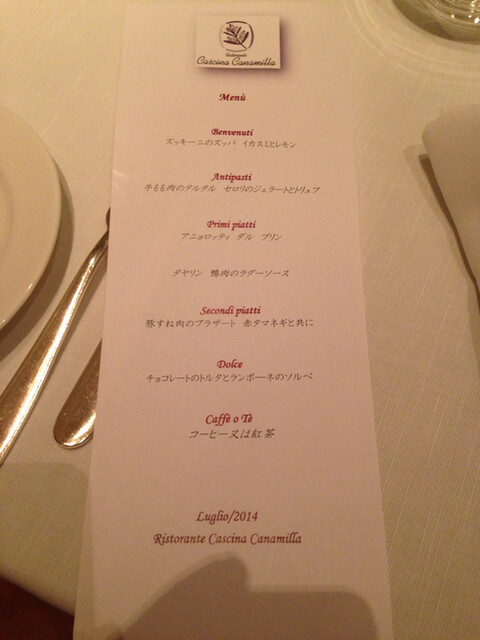 Ristorante
Cascina Canamilla
Menù
Benvenuti
ズッキーニのズッパ イカスミとレモン
Antipasti
牛もも肉のタルタル セロリのジェラートとトリュフ
Primi piatti
アニョロッティ デル プリン
タヤリン 鴨肉のラグーソース
Secondi piatti
豚すね肉のブラザート 赤タマネギと共に
Dolce
チョコレートのトルタとランポーネのソルベ
Caffè o Tè
コーヒー又は紅茶
Luglio/2014
Ristorante Cascina Canamilla